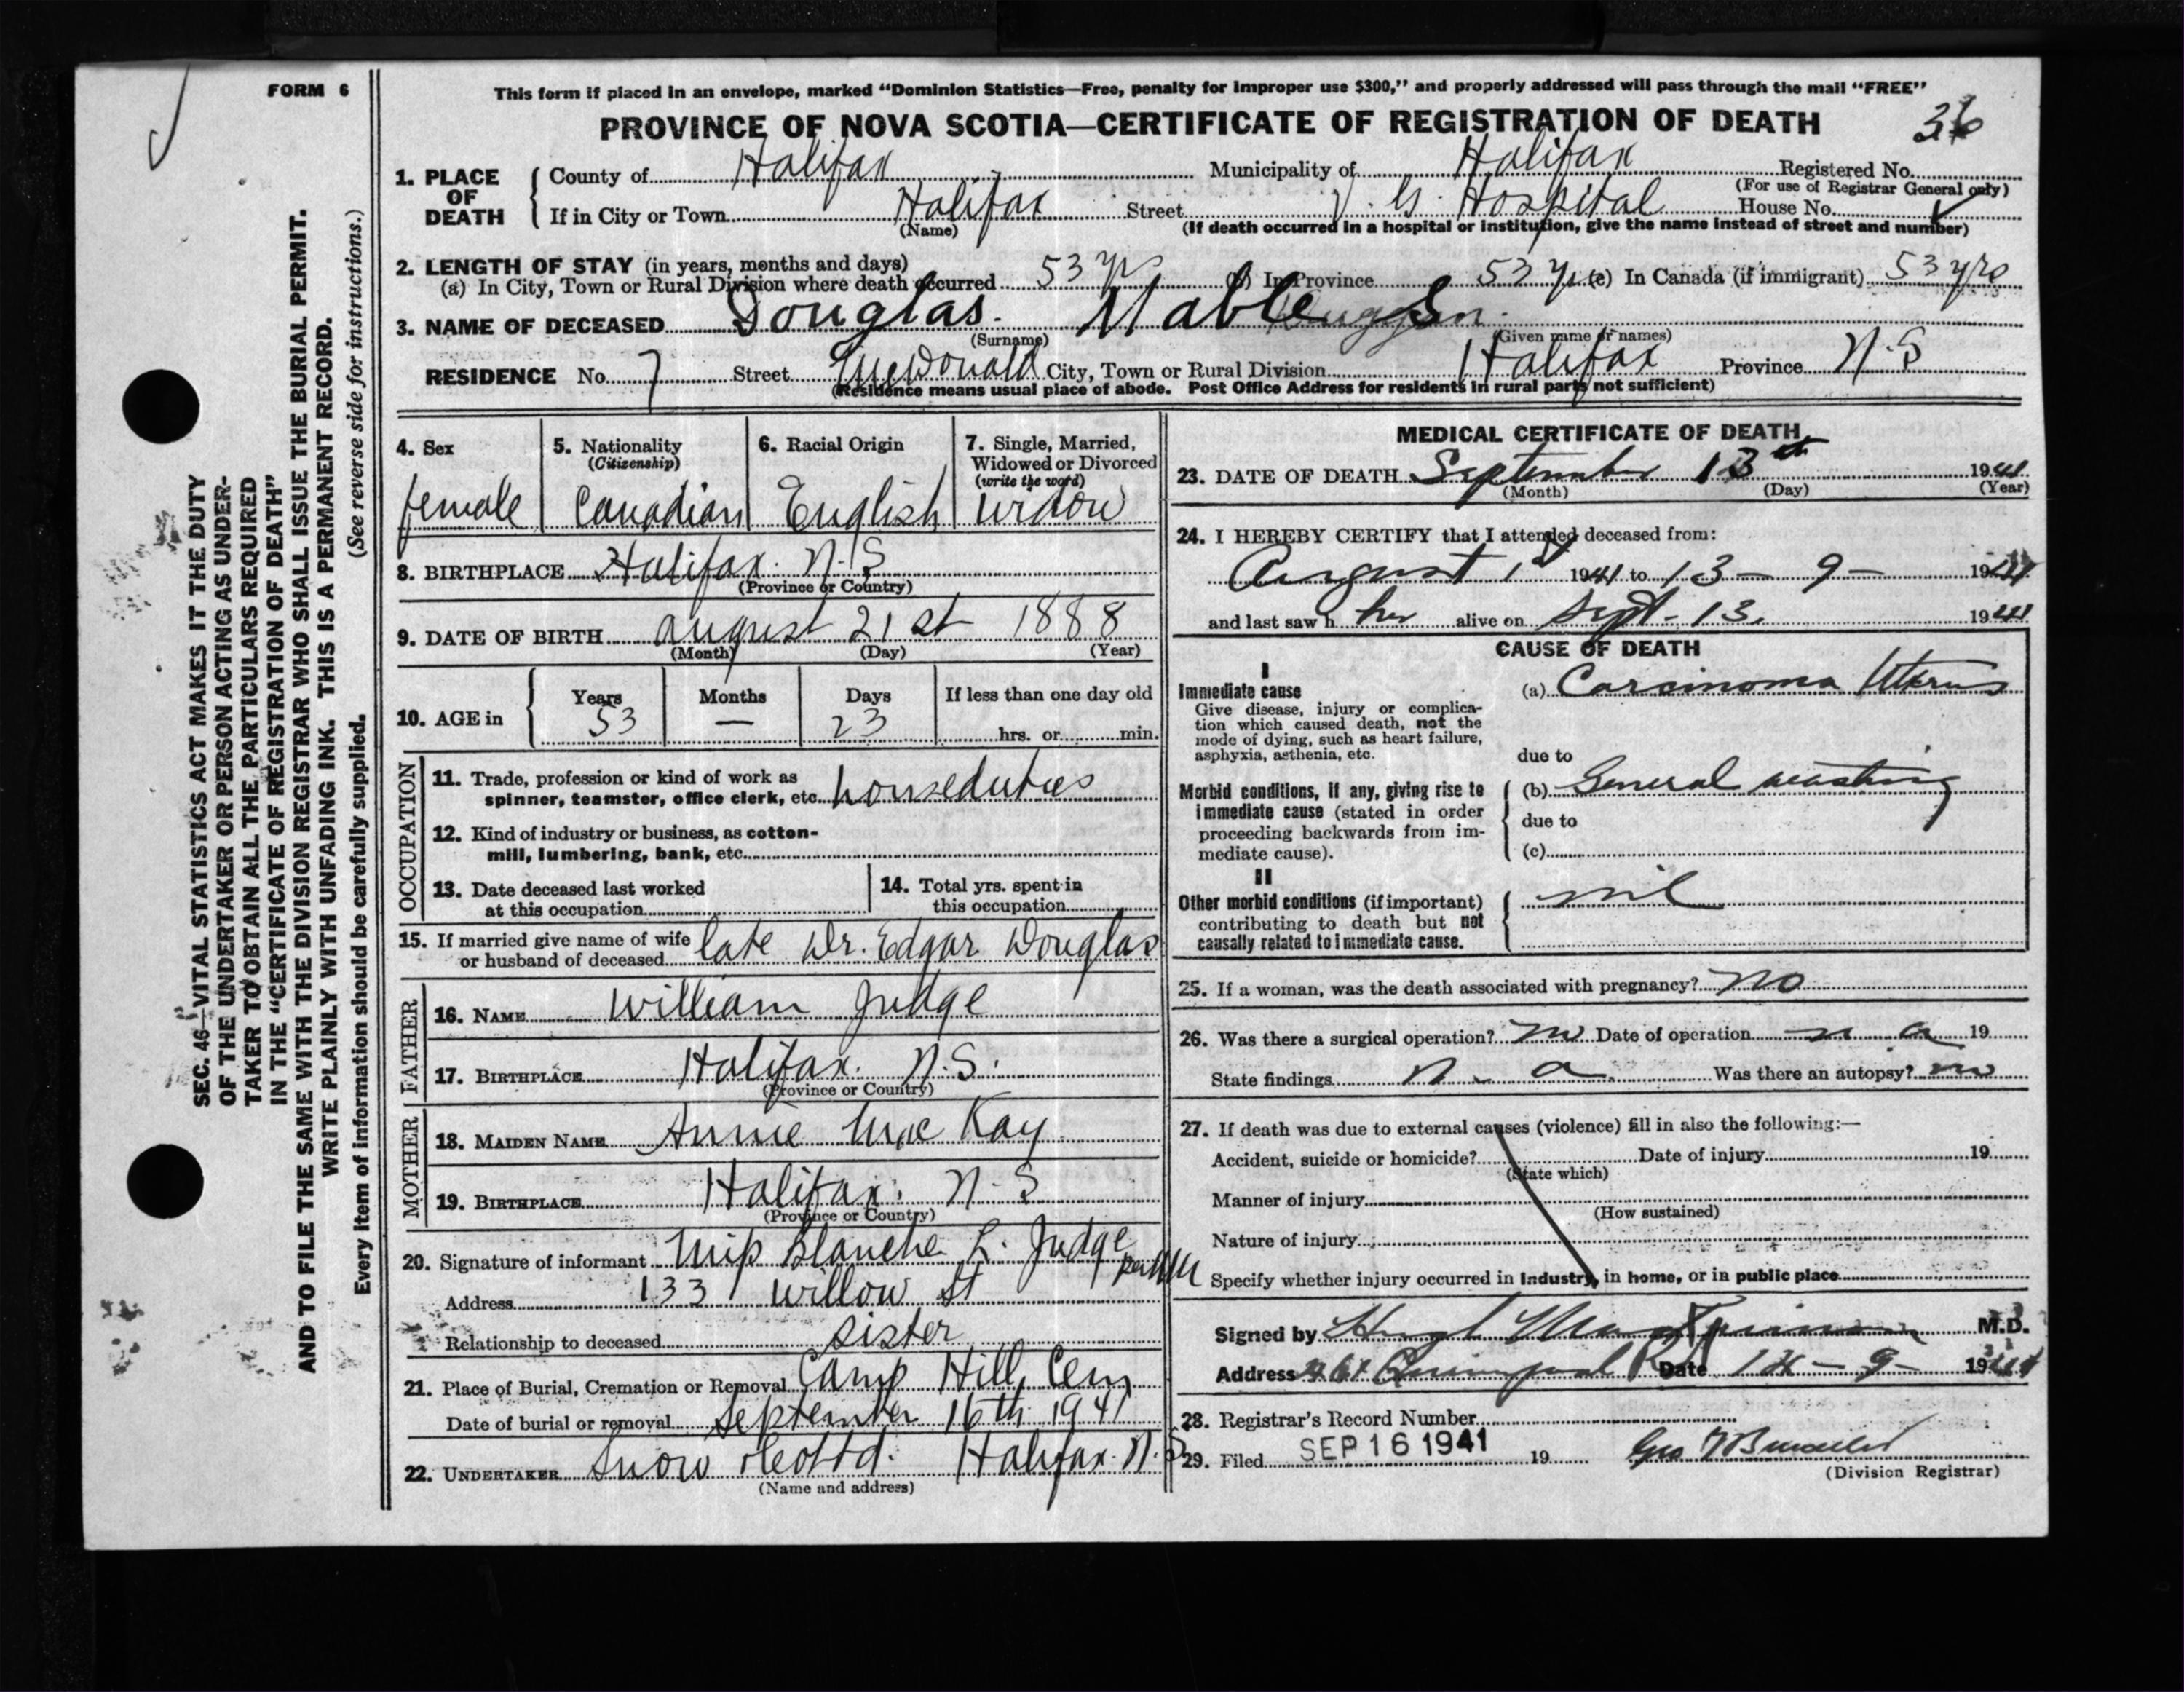 FORM 6
This form if placed in an envelope, marked "Dominion Statistics—Free, penalty for improper use $300," and properly addressed will pass through the mail "FREE"
PROVINCE OF NOVA SCOTIA—CERTIFICATE OF REGISTRATION OF DEATH 36
1. PLACE OF DEATH
County of Halifax Municipality of Halifax Registered No.
(For use of Registrar General only)
If in City or Town Halifax Street V. G. Hospital House No.
(Name) (If death occurred in a hospital or institution, give the name instead of street and number)
2. LENGTH OF STAY (in years, months and days)
(a) In City, Town or Rural Division where death occurred 53 yrs (b) In Province 53 yrs (c) In Canada (if immigrant) 53 yrs
3. NAME OF DECEASED Douglas. Mable
(Surname) (Given name or names)
RESIDENCE No. 7 Street McDonald City, Town or Rural Division Halifax Province N.S
(Residence means usual place of abode. Post Office Address for residents in rural parts not sufficient)
4. Sex female
5. Nationality (Citizenship) Canadian
6. Racial Origin English
7. Single, Married, Widowed or Divorced (write the word) widow
8. BIRTHPLACE Halifax. N.S
(Province or Country)
9. DATE OF BIRTH august 21st 1888
(Month) (Day) (Year)
10. AGE in Years 53 Months — Days 23 If less than one day old hrs. or min.
OCCUPATION
11. Trade, profession or kind of work as spinner, teamster, office clerk, etc. houseduties
12. Kind of industry or business, as cotton-mill, lumbering, bank, etc.
13. Date deceased last worked at this occupation
14. Total yrs. spent in this occupation
15. If married give name of wife or husband of deceased late Dr. Edgar Douglas
FATHER
16. NAME William Judge
17. BIRTHPLACE Halifax. N.S.
(Province or Country)
MOTHER
18. MAIDEN NAME Annie Mac Kay
19. BIRTHPLACE Halifax. N.S
(Province or Country)
20. Signature of informant Miss Blanche L. Judge
Address 133 Willow St
Relationship to deceased sister
21. Place of Burial, Cremation or Removal Camp Hill Cem
Date of burial or removal September 16th 1941
22. UNDERTAKER Snow & Co Ltd. Halifax. N.S
(Name and address)
MEDICAL CERTIFICATE OF DEATH
23. DATE OF DEATH September 13th 1941
(Month) (Day) (Year)
24. I HEREBY CERTIFY that I attended deceased from:
August 1st 1941 to 13 - 9 - 1941
and last saw h her alive on Sept. 13. 1941
CAUSE OF DEATH
I
Immediate cause
Give disease, injury or complication which caused death, not the mode of dying, such as heart failure, asphyxia, asthenia, etc.
(a) Carcinoma Uterus
due to
Morbid conditions, if any, giving rise to immediate cause (stated in order proceeding backwards from immediate cause).
(b) General wasting
due to
(c)
II
Other morbid conditions (if important) contributing to death but not causally related to immediate cause.
nil
25. If a woman, was the death associated with pregnancy? no
26. Was there a surgical operation? no Date of operation n a 19
State findings n. a. Was there an autopsy? no
27. If death was due to external causes (violence) fill in also the following:—
Accident, suicide or homicide? Date of injury 19
(State which)
Manner of injury
(How sustained)
Nature of injury
Specify whether injury occurred in industry, in home, or in public place
Signed by Hugh MacKinnon M.D.
Address Quinpool Rd Date 14 - 9 - 1941
28. Registrar's Record Number
29. Filed SEP 16 1941 19
(Division Registrar)
SEC. 46—VITAL STATISTICS ACT MAKES IT THE DUTY
OF THE UNDERTAKER OR PERSON ACTING AS UNDER-
TAKER TO OBTAIN ALL THE PARTICULARS REQUIRED
IN THE "CERTIFICATE OF REGISTRATION OF DEATH"
AND TO FILE THE SAME WITH THE DIVISION REGISTRAR WHO SHALL ISSUE THE BURIAL PERMIT.
WRITE PLAINLY WITH UNFADING INK. THIS IS A PERMANENT RECORD.
Every item of information should be carefully supplied. (See reverse side for instructions.)